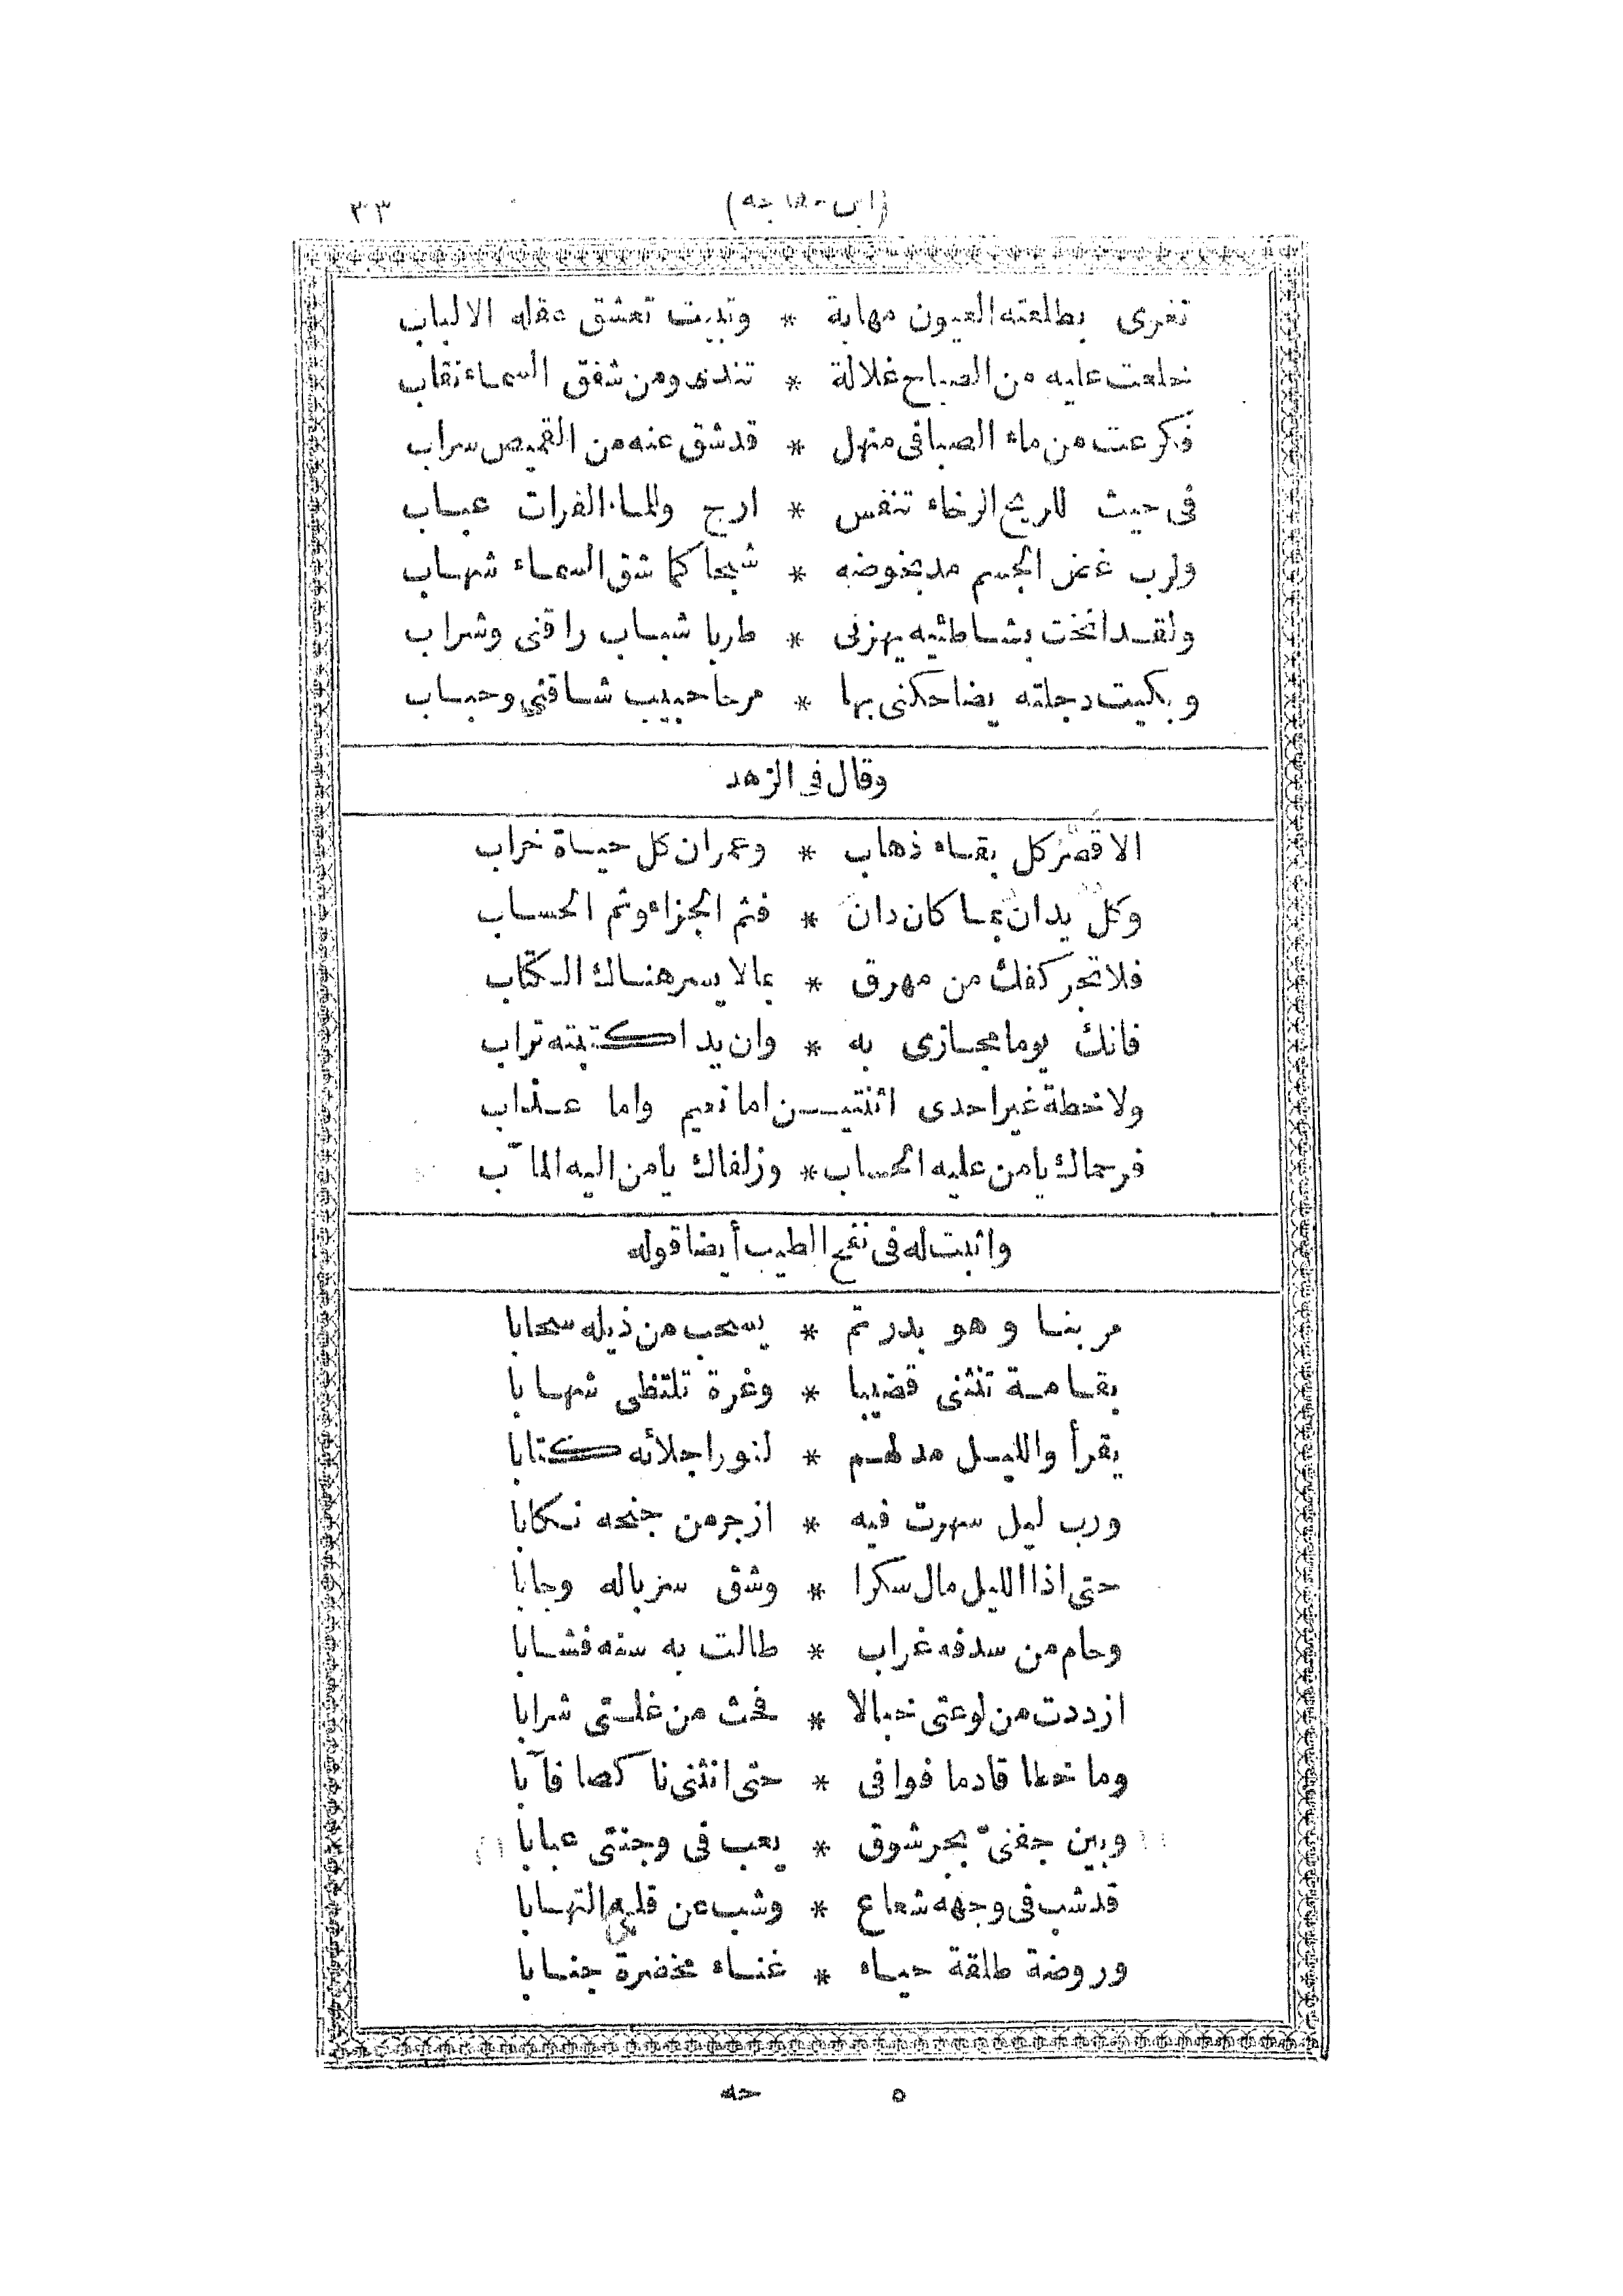 ٣٣ (ابن خفاجه)
تغرى بطلعته العيون مهابة * وتبيت تعشق عقله الالباب
خلعت عليه من الصباح غلالة * تندى ومن شفق السماء نقاب
فكرعت من ماء الصبا فى منهل * قد شق عنه من القميص سراب
فى حيث للريح الرخاء تنفس * ارج وللماء الفرات عباب
ولرب غض الجسم مد بخوضه * شبحا كما شق السماء شهاب
ولقد انخت بشاطئيه يهزنى * طربا شباب راقنى وشراب
وبكيت دجلته يضاحكنى بها * مرحا حبيب شاقنى وحباب
وقال فى الزهد
الا قصر كل بقاء ذهاب * وعمران كل حياة خراب
وكل يدان بما كان دان * فثم الجزاء وثم الحساب
فلا تجر كفك من مهرق * بمالا يسر هناك الكتاب
فانك يوما مجازى به * وان يدا كتبته تراب
ولا خطة غير احدى اثنتيـن اما نعيم واما عذاب
فرحماك يا من عليه الحساب * وزلفاك يا من اليه المآب
واثبت له فى نفح الطيب أيضا قوله
مر بنا وهو بدر تم * يسحب من ذيله سحابا
بقامة تنثنى قضيبا * وغرة تلتظى شهابا
يقرأ والليل مدلهم * لنور اجلائه كتابا
ورب ليل سهرت فيه * ازجر من جنحه
حتى اذا الليل مال سكرا * وشق سرباله وجابا
وحام من سدفه غراب * طالت به سنه فشابا
ازددت من لوعتى خبالا * فحث من غلتى شرابا
وما خطا قادما فوافى * حتى انثنى ناكصا فآبا
وبين جفنىّ بحر شوق * يعب فى وجنتى عبابا
قد شب فى وجهه شعاع * وشب عن قلبه التهابا
وروضة طلقة حياء * غناء مخضرة جنابا
٥ جه